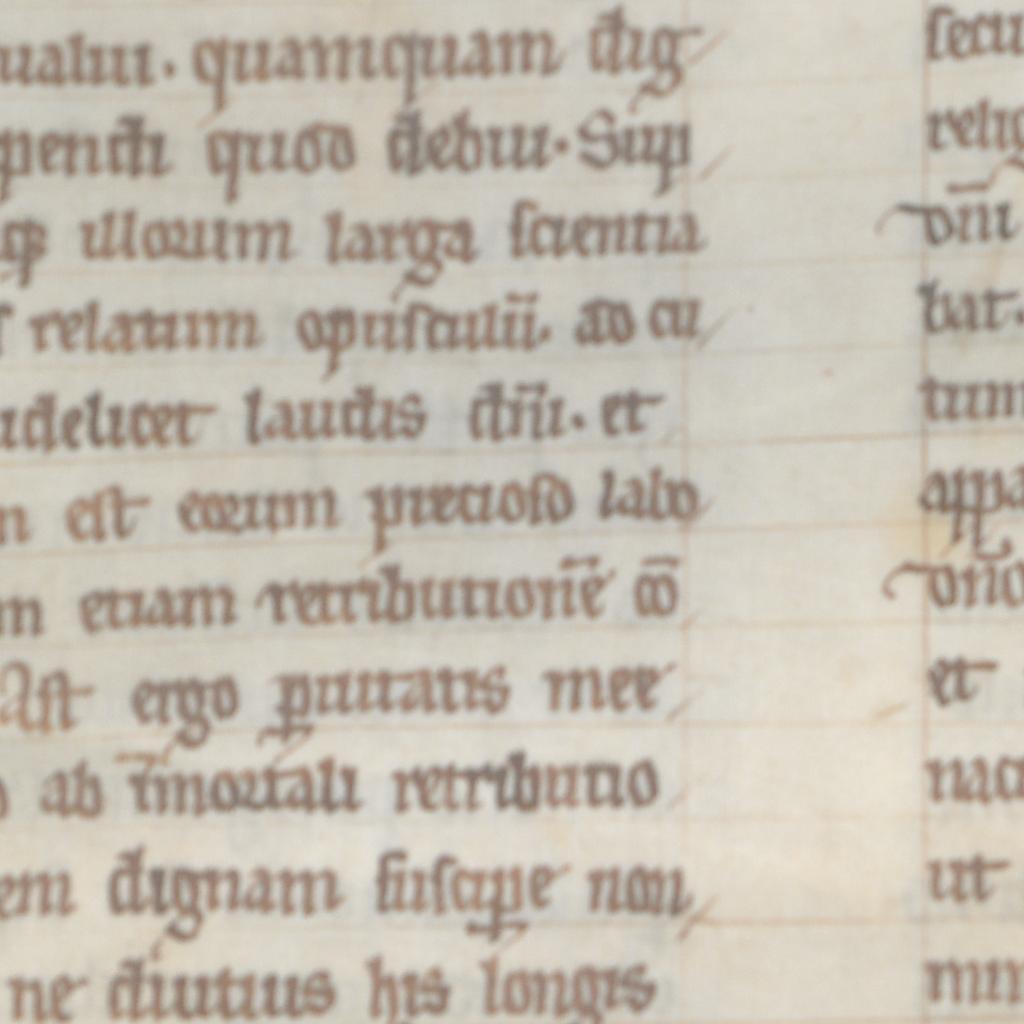 ualui. quamquam dig
pendi quod debui. Sup
illorum larga scientia
relatum opusculū. ad cu
delicet laudis dn̄i. et
est eorum precioso labo
etiam retributionē cō
Ast ergo puitatis mee
ab īmortali retributio
em dignam suscipe non
ne diutius his longis
secu
relig
dn̄i
bat.
tum
appa
et
nac
ut